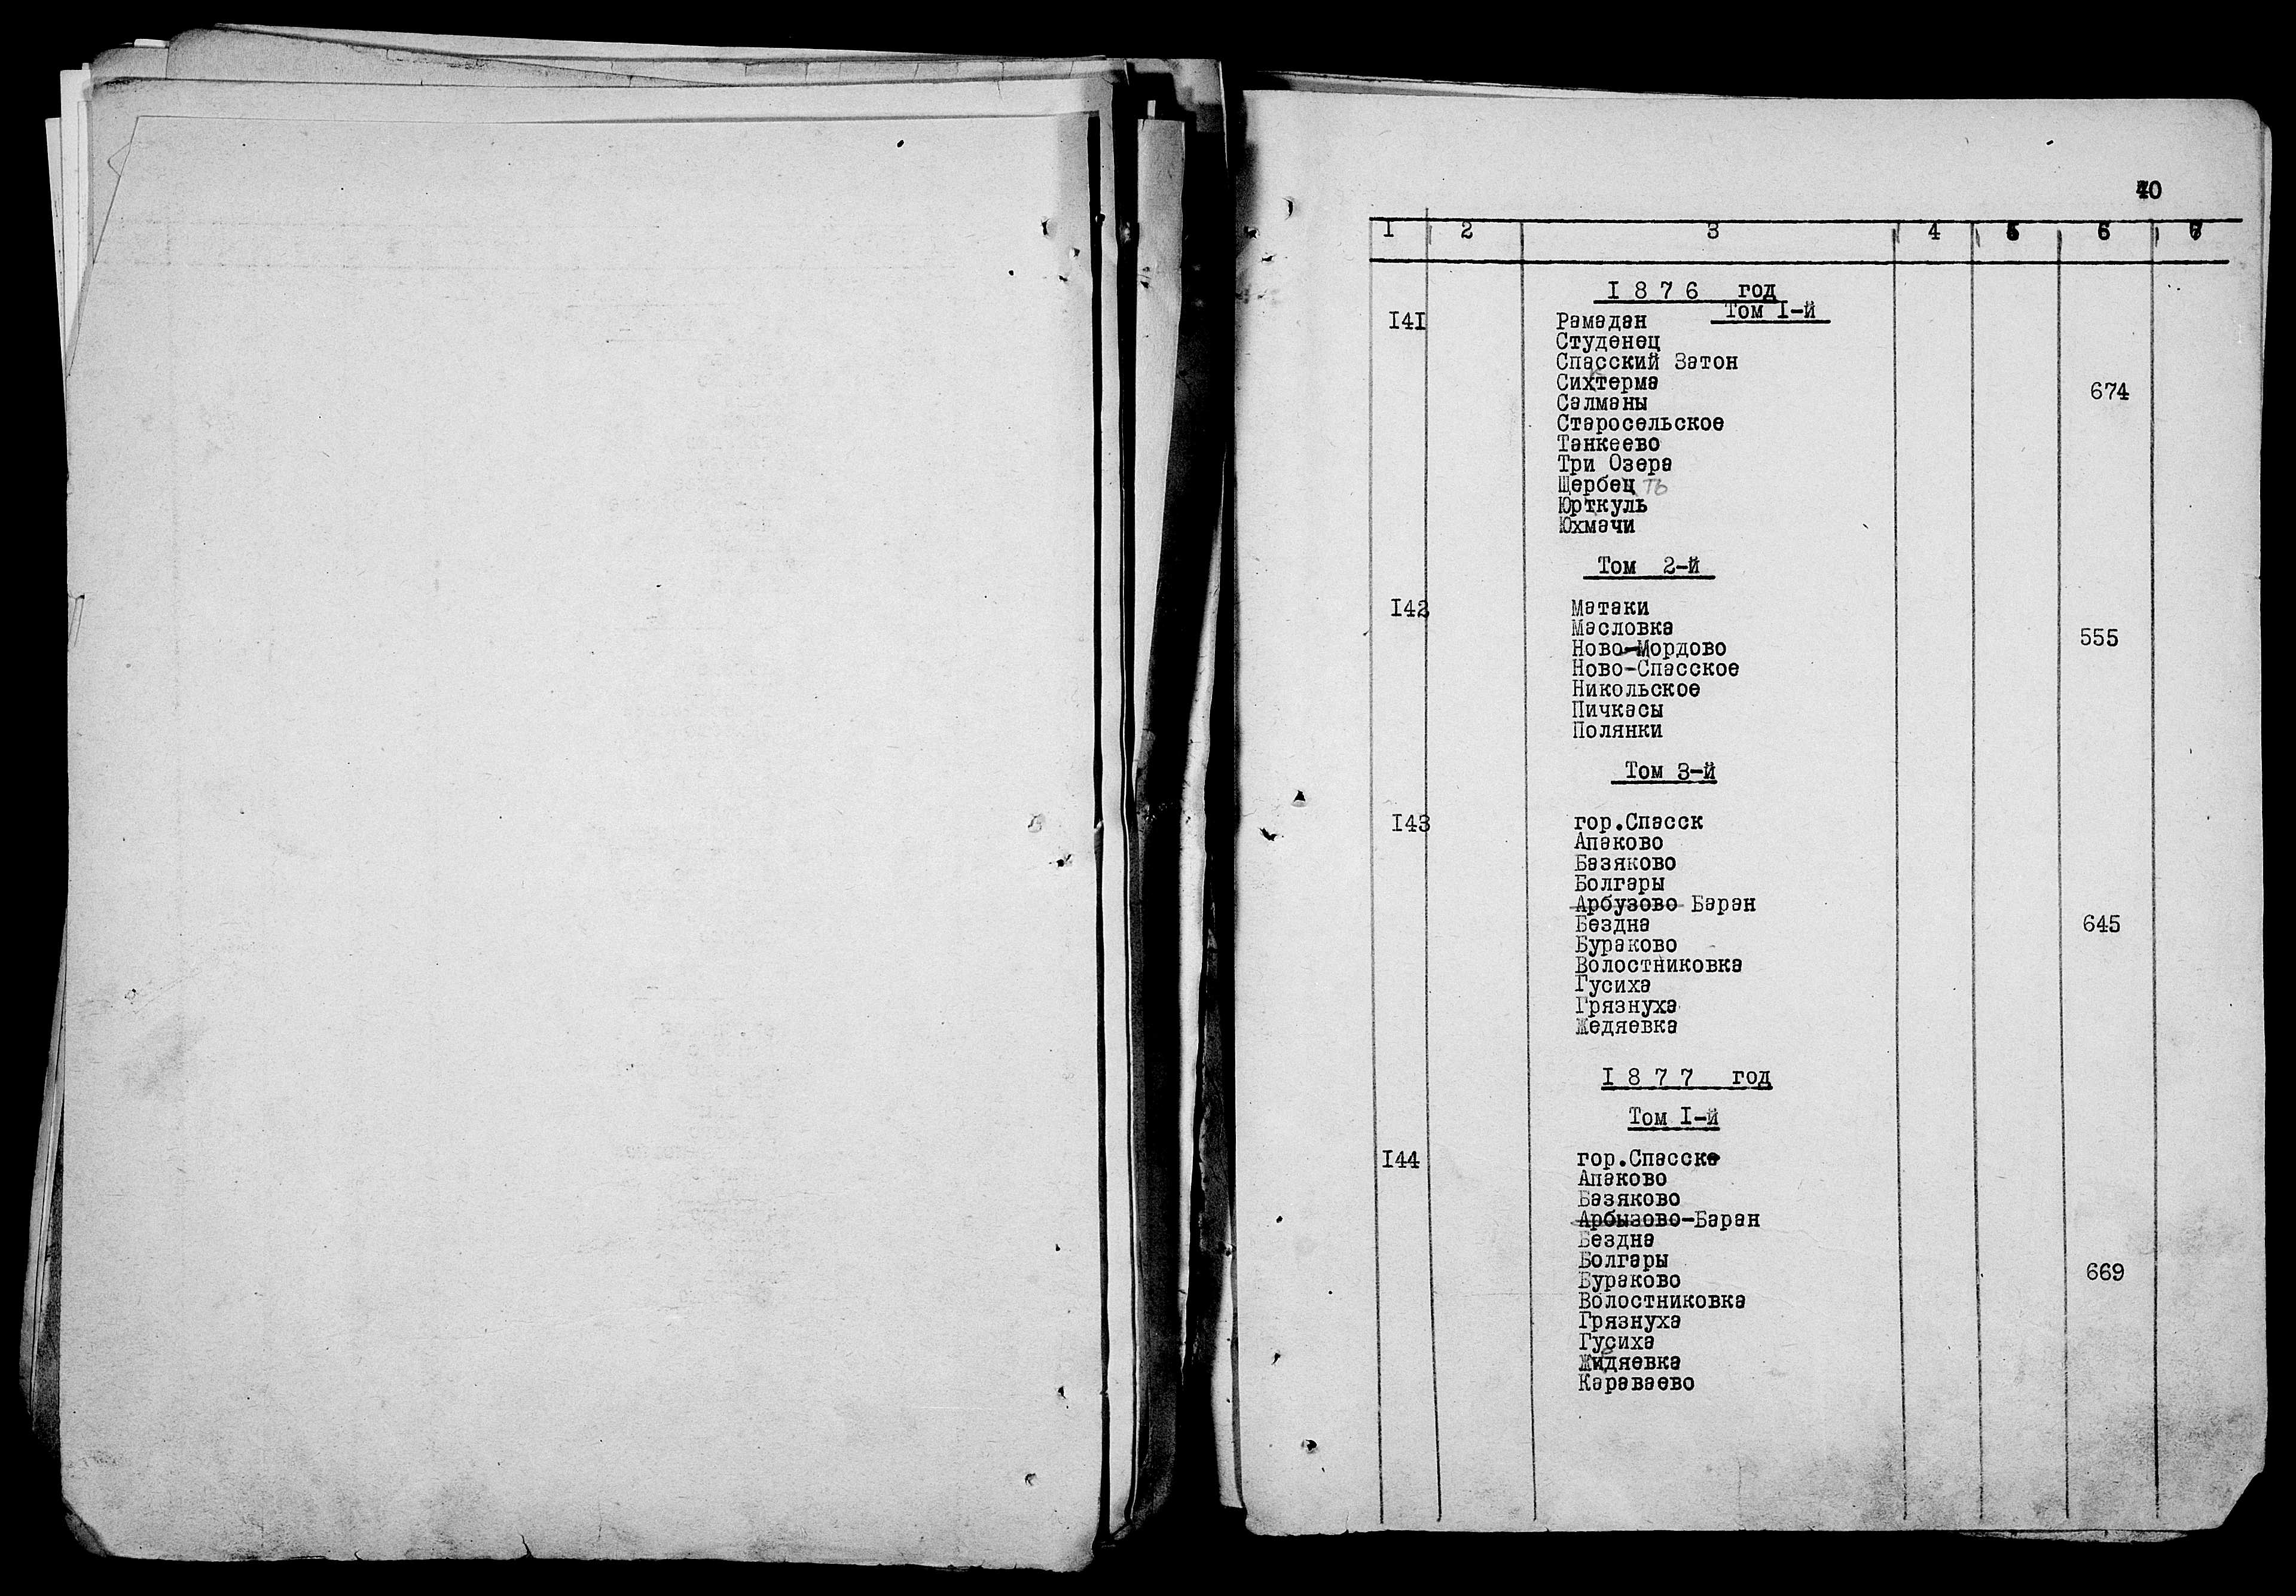 40
1 2 3 4 5 6 7
I 8 7 6 год
Том I-й
I4I Рамадан
Студенец
Спасский Затон
Сихтерма
674
Салманы
Старосельское
Танкеево
Три Озера
Щербец ть
Юрткуль
Юхмачи
Том 2-й
I42 Матаки
Масловка
555
Ново-Мордово
Ново-Спасское
Никольское
Пичкасы
Полянки
Том 3-й
I43 гор.Спасск
Апаково
Базяково
Болгары
Арбузово Баран
Бездна 645
Бураково
Волостниковка
Гусиха
Грязнуха
Жедяевка
I 8 7 7 год
Том I-й
I44 гор.Спасска
Апаково
Базяково
Арбызово-Баран
Бездна
Болгары
669
Бураково
Волостниковка
Грязнуха
Гусиха
Жидяевка
Караваево